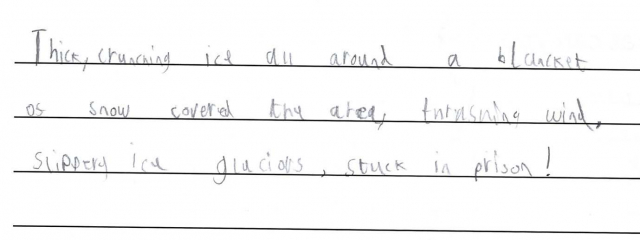 Thick, crunching ice all around a blancket
os snow covered the area, thrashing wind,
slippery ice glaciors, stuck in prison!